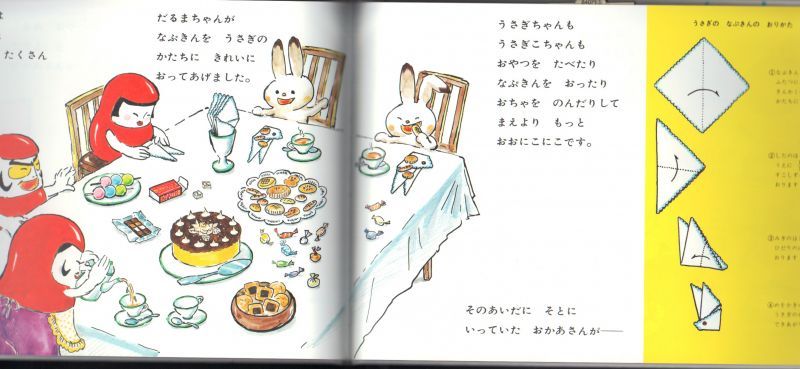 は
たくさん
だるまちゃんが
なぷきんを うさぎの
かたちに きれいに
おってあげました。
うさぎちゃんも
うさぎこちゃんも
おやつを たべたり
なぷきんを おったり
おちゃを のんだりして
まえより もっと
おおにこにこです。
そのあいだに そとに
いっていた おかあさんが——
うさぎの なぷきんの おりかた
①なぷきん
ふたつに
さんかく
かたちに
②したのは
うえに
すこしず
おります
③みぎのは
ひだりの
おります
うさぎの
できあが